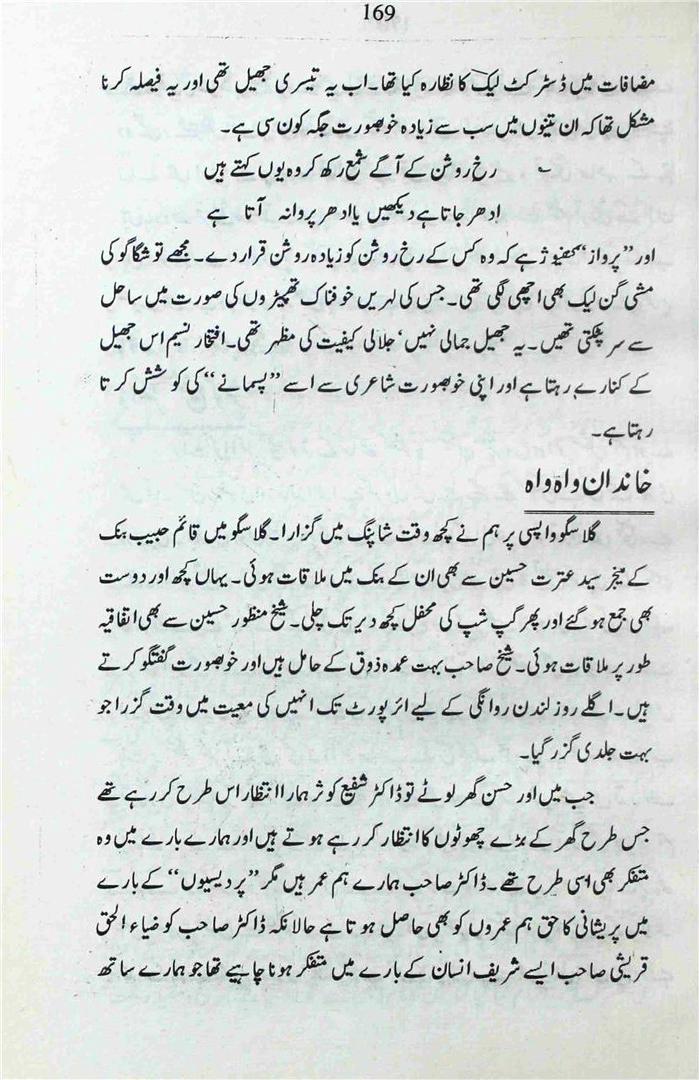 169
مضافات میں ڈسٹرکٹ لیک کا نظارہ کیا تھا۔ اب یہ تیسری جھیل تھی اور یہ فیصلہ کرنا
مشکل تھا کہ ان تینوں میں سب سے زیادہ خوبصورت جگہ کون سی ہے۔
رخ روشن کے آگے شمع رکھ کر وہ یوں کہتے ہیں
اِدھر جاتا ہے دیکھیں یا اِدھر پروانہ آتا ہے
اور ”پرواز“ کنفیوژ ہے کہ وہ کس کے رخ روشن کو زیادہ روشن قرار دے۔ مجھے تو شکاگو کی
مشی گن لیک بھی اچھی لگی تھی۔ جس کی لہریں خوفناک تھپیڑوں کی صورت میں ساحل
سے سر پٹکتی تھیں۔ یہ جھیل جمالی نہیں‘ جلالی کیفیت کی مظہر تھی۔ افتخار نسیم اس جھیل
کے کنارے رہتا ہے اور اپنی خوبصورت شاعری سے اسے ”پسمانے“ کی کوشش کرتا
رہتا ہے۔
خاندان واہ واہ
گلاسگو واپسی پر ہم نے کچھ وقت شاپنگ میں گزارا۔ گلاسگو میں قائم حبیب بنک
کے منیجر سید عترت حسین سے بھی ان کے بنک میں ملاقات ہوئی۔ یہاں کچھ اور دوست
بھی جمع ہو گئے اور پھر گپ شپ کی محفل کچھ دیر تک چلی۔ شیخ منظور حسین سے بھی اتفاقیہ
طور پر ملاقات ہوئی۔ شیخ صاحب بہت عمدہ ذوق کے حامل ہیں اور خوبصورت گفتگو کرتے
ہیں۔ اگلے روز لندن روانگی کے لیے ائرپورٹ تک انہیں کی معیت میں وقت گزرا جو
بہت جلدی گزر گیا۔
جب میں اور حسن گھر لوٹے تو ڈاکٹر شفیع کوثر ہمارا انتظار اس طرح کر رہے تھے
جس طرح گھر کے بڑے چھوٹوں کا انتظار کر رہے ہوتے ہیں اور ہمارے بارے میں وہ
متفکر بھی اسی طرح تھے۔ ڈاکٹر صاحب ہمارے ہم عمر ہیں مگر ”پردیسیوں“ کے بارے
میں پریشانی کا حق ہم عمروں کو بھی حاصل ہوتا ہے حالانکہ ڈاکٹر صاحب کو ضیاء الحق
قریشی صاحب ایسے شریف انسان کے بارے میں متفکر ہونا چاہیے تھا جو ہمارے ساتھ